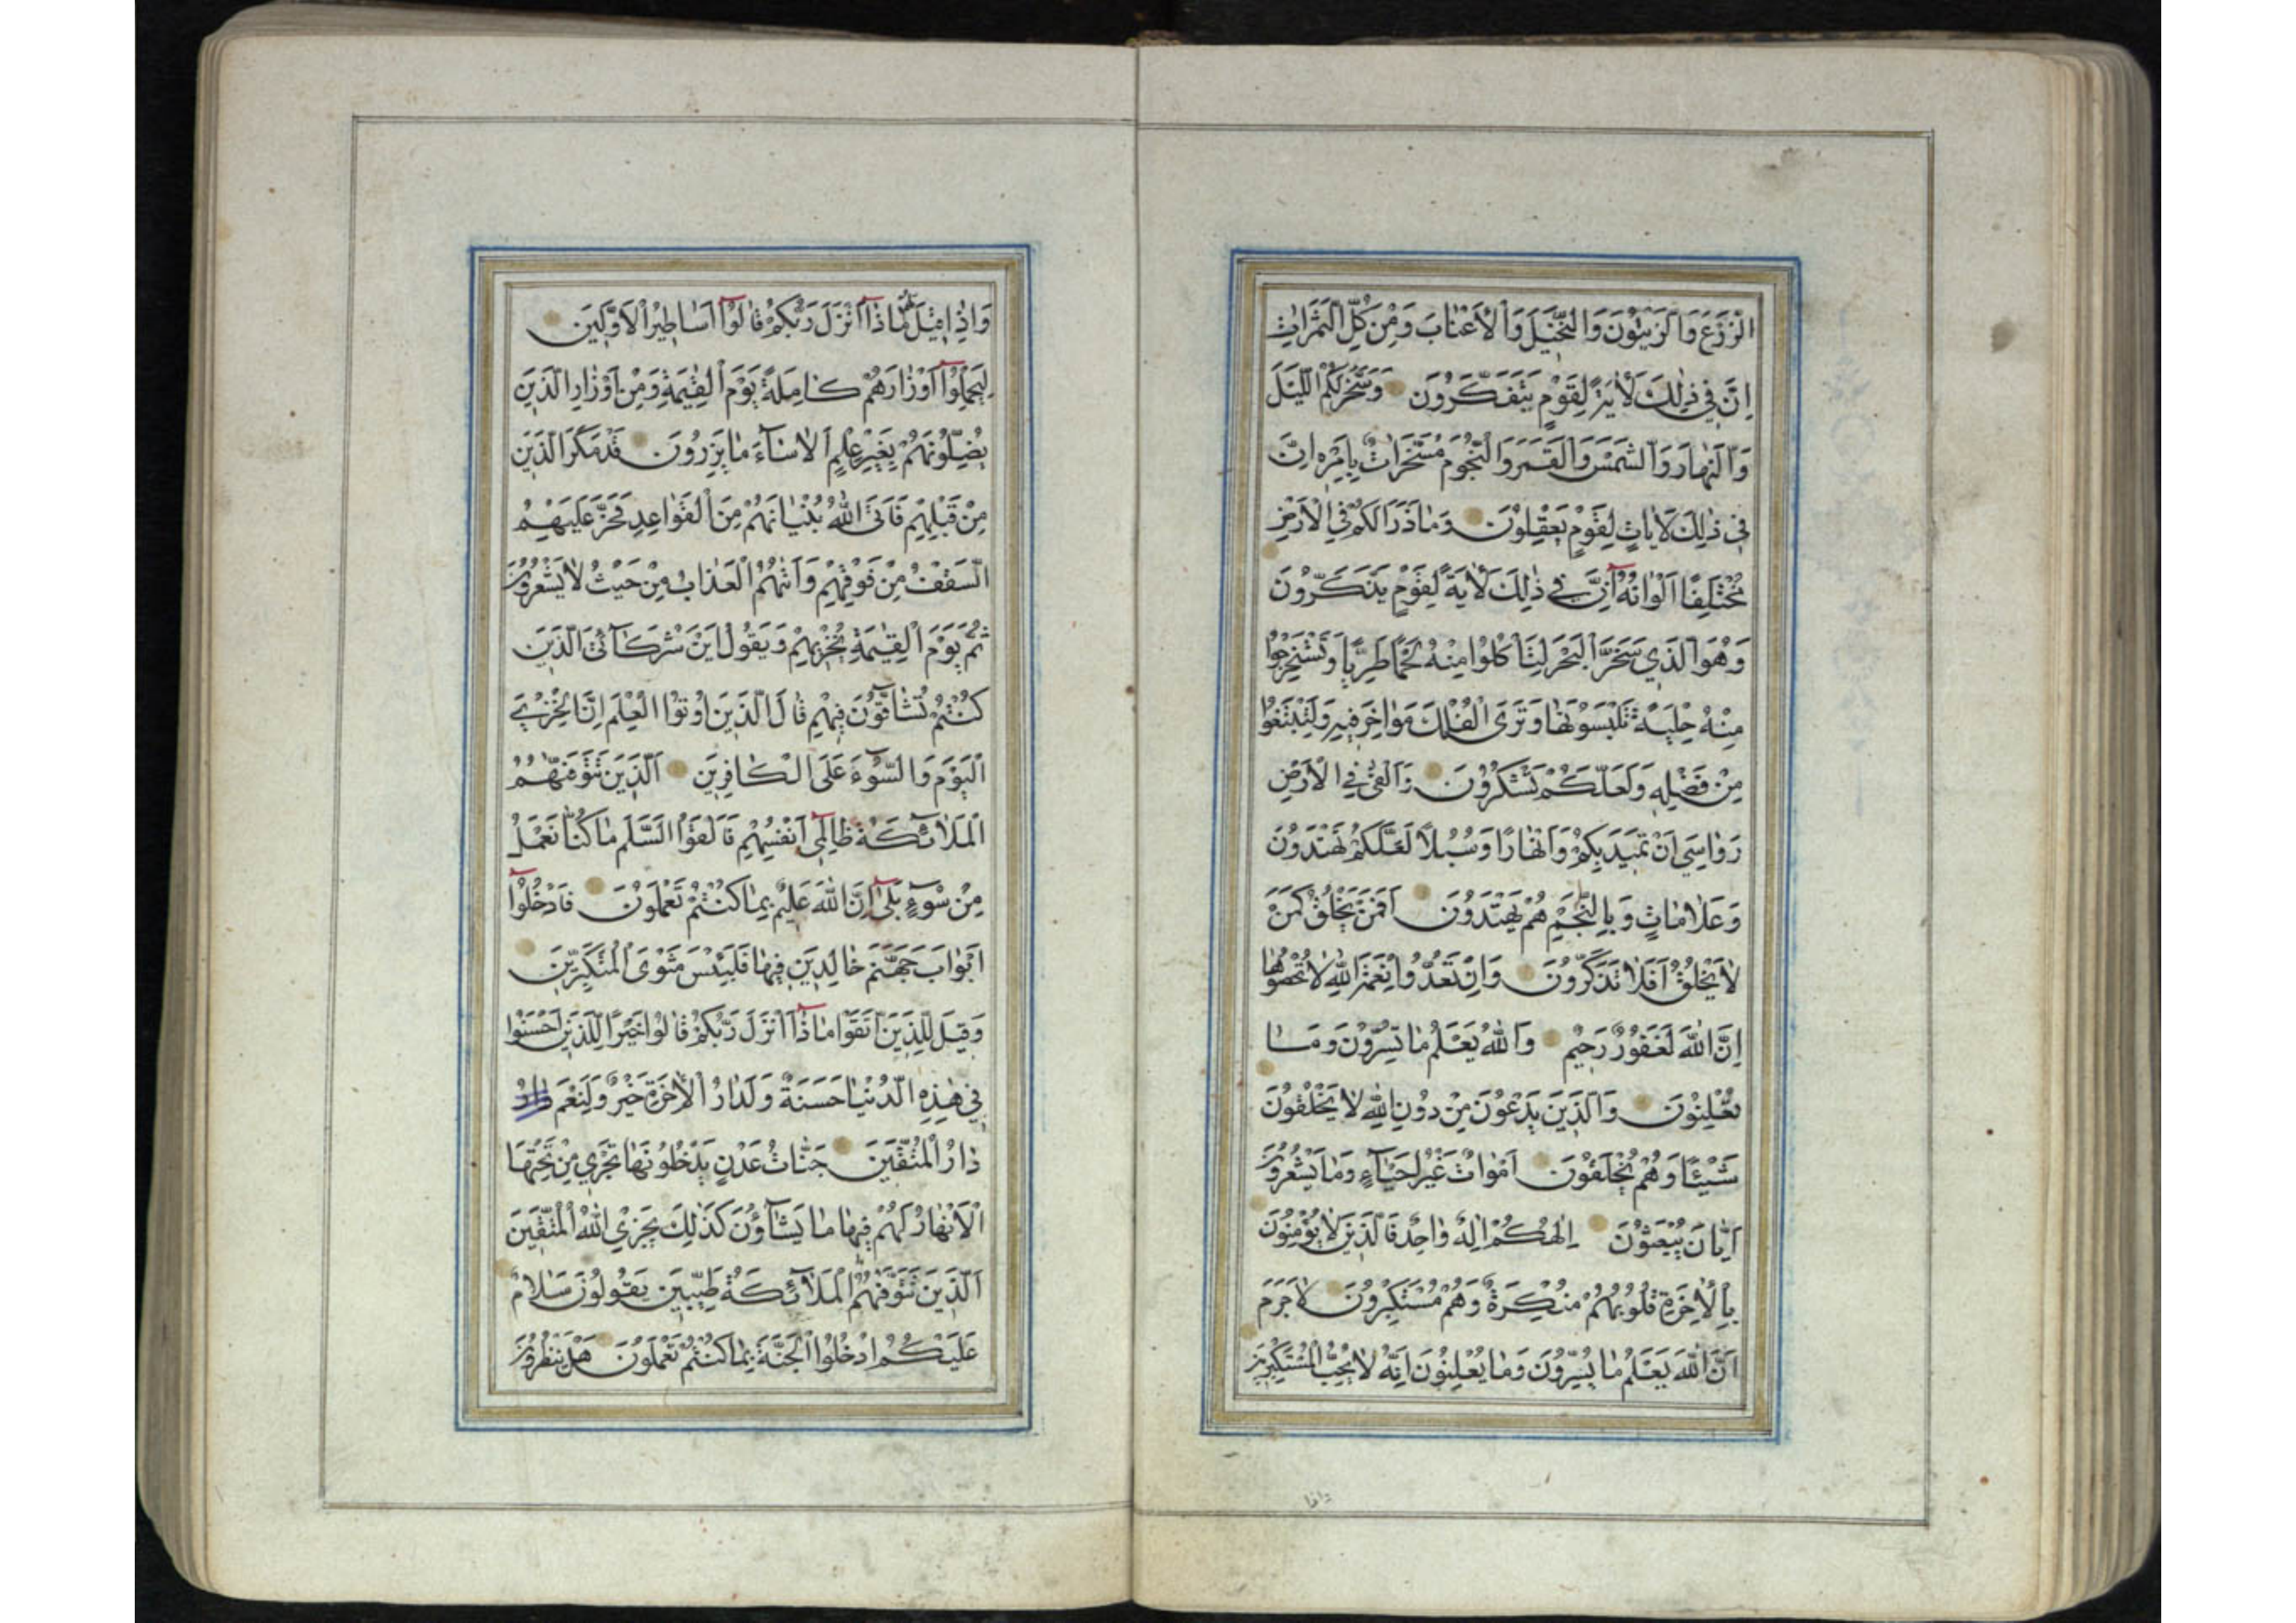 الزَّرْعَ وَالزَّيْتُونَ وَالنَّخِيلَ وَالْأَعْنَابَ وَمِنْ كُلِّ الثَّمَرَاتِ
إِنَّ فِي ذٰلِكَ لَاٰيَةً لِقَوْمٍ يَتَفَكَّرُونَ وَسَخَّرَ لَكُمُ اللَّيْلَ
وَالنَّهَارَ وَالشَّمْسَ وَالْقَمَرَ وَالنُّجُومَ مُسَخَّرَاتٌ بِأَمْرِهِ إِنَّ
فِي ذٰلِكَ لَاٰيَاتٍ لِقَوْمٍ يَعْقِلُونَ وَمَا ذَرَأَ لَكُمْ فِي الْأَرْضِ
مُخْتَلِفًا أَلْوَانُهُ إِنَّ فِي ذٰلِكَ لَاٰيَةً لِقَوْمٍ يَذَّكَّرُونَ
وَهُوَ الَّذِي سَخَّرَ الْبَحْرَ لِتَأْكُلُوا مِنْهُ لَحْمًا طَرِيًّا وَتَسْتَخْرِجُوا
مِنْهُ حِلْيَةً تَلْبَسُونَهَا وَتَرَى الْفُلْكَ مَوَاخِرَ فِيهِ وَلِتَبْتَغُوا
مِنْ فَضْلِهِ وَلَعَلَّكُمْ تَشْكُرُونَ وَأَلْقٰى فِي الْأَرْضِ
رَوَاسِيَ أَنْ تَمِيدَ بِكُمْ وَأَنْهَارًا وَسُبُلًا لَعَلَّكُمْ تَهْتَدُونَ
وَعَلَامَاتٍ وَبِالنَّجْمِ هُمْ يَهْتَدُونَ أَفَمَنْ يَخْلُقُ كَمَنْ
لَا يَخْلُقُ أَفَلَا تَذَكَّرُونَ وَإِنْ تَعُدُّوا نِعْمَةَ اللّٰهِ لَا تُحْصُوهَا
إِنَّ اللّٰهَ لَغَفُورٌ رَحِيمٌ وَاللّٰهُ يَعْلَمُ مَا تُسِرُّونَ وَمَا
تُعْلِنُونَ وَالَّذِينَ يَدْعُونَ مِنْ دُونِ اللّٰهِ لَا يَخْلُقُونَ
شَيْئًا وَهُمْ يُخْلَقُونَ أَمْوَاتٌ غَيْرُ أَحْيَآءٍ وَمَا يَشْعُرُونَ
أَيَّانَ يُبْعَثُونَ إِلٰهُكُمْ إِلٰهٌ وَاحِدٌ فَالَّذِينَ لَا يُؤْمِنُونَ
بِالْاٰخِرَةِ قُلُوبُهُمْ مُنْكِرَةٌ وَهُمْ مُسْتَكْبِرُونَ لَا جَرَمَ
أَنَّ اللّٰهَ يَعْلَمُ مَا يُسِرُّونَ وَمَا يُعْلِنُونَ إِنَّهُ لَا يُحِبُّ الْمُسْتَكْبِرِينَ
واذا
وَإِذَا قِيلَ لَهُمْ مَاذَآ أَنْزَلَ رَبُّكُمْ قَالُوٓا أَسَاطِيرُ الْأَوَّلِينَ
لِيَحْمِلُوٓا أَوْزَارَهُمْ كَامِلَةً يَوْمَ الْقِيٰمَةِ وَمِنْ أَوْزَارِ الَّذِينَ
يُضِلُّونَهُمْ بِغَيْرِ عِلْمٍ أَلَا سَآءَ مَا يَزِرُونَ قَدْ مَكَرَ الَّذِينَ
مِنْ قَبْلِهِمْ فَأَتَى اللّٰهُ بُنْيَانَهُمْ مِنَ الْقَوَاعِدِ فَخَرَّ عَلَيْهِمُ
السَّقْفُ مِنْ فَوْقِهِمْ وَأَتٰىهُمُ الْعَذَابُ مِنْ حَيْثُ لَا يَشْعُرُونَ
ثُمَّ يَوْمَ الْقِيٰمَةِ يُخْزِيهِمْ وَيَقُولُ أَيْنَ شُرَكَآئِيَ الَّذِينَ
كُنْتُمْ تُشَآقُّونَ فِيهِمْ قَالَ الَّذِينَ أُوتُوا الْعِلْمَ إِنَّ الْخِزْيَ
الْيَوْمَ وَالسُّوٓءَ عَلَى الْكَافِرِينَ الَّذِينَ تَتَوَفّٰهُمُ
الْمَلَآئِكَةُ ظَالِمِيٓ أَنْفُسِهِمْ فَأَلْقَوُا السَّلَمَ مَا كُنَّا نَعْمَلُ
مِنْ سُوٓءٍ بَلٰىٓ إِنَّ اللّٰهَ عَلِيمٌ بِمَا كُنْتُمْ تَعْمَلُونَ فَادْخُلُوٓا
أَبْوَابَ جَهَنَّمَ خَالِدِينَ فِيهَا فَلَبِئْسَ مَثْوَى الْمُتَكَبِّرِينَ
وَقِيلَ لِلَّذِينَ اتَّقَوْا مَاذَآ أَنْزَلَ رَبُّكُمْ قَالُوا خَيْرًا لِلَّذِينَ أَحْسَنُوا
فِي هٰذِهِ الدُّنْيَا حَسَنَةٌ وَلَدَارُ الْاٰخِرَةِ خَيْرٌ وَلَنِعْمَ
دَارُ الْمُتَّقِينَ جَنَّاتُ عَدْنٍ يَدْخُلُونَهَا تَجْرِي مِنْ تَحْتِهَا
الْأَنْهَارُ لَهُمْ فِيهَا مَا يَشَآؤُنَ كَذٰلِكَ يَجْزِي اللّٰهُ الْمُتَّقِينَ
الَّذِينَ تَتَوَفّٰهُمُ الْمَلَآئِكَةُ طَيِّبِينَ يَقُولُونَ سَلَامٌ
عَلَيْكُمُ ادْخُلُوا الْجَنَّةَ بِمَا كُنْتُمْ تَعْمَلُونَ هَلْ يَنْظُرُونَ